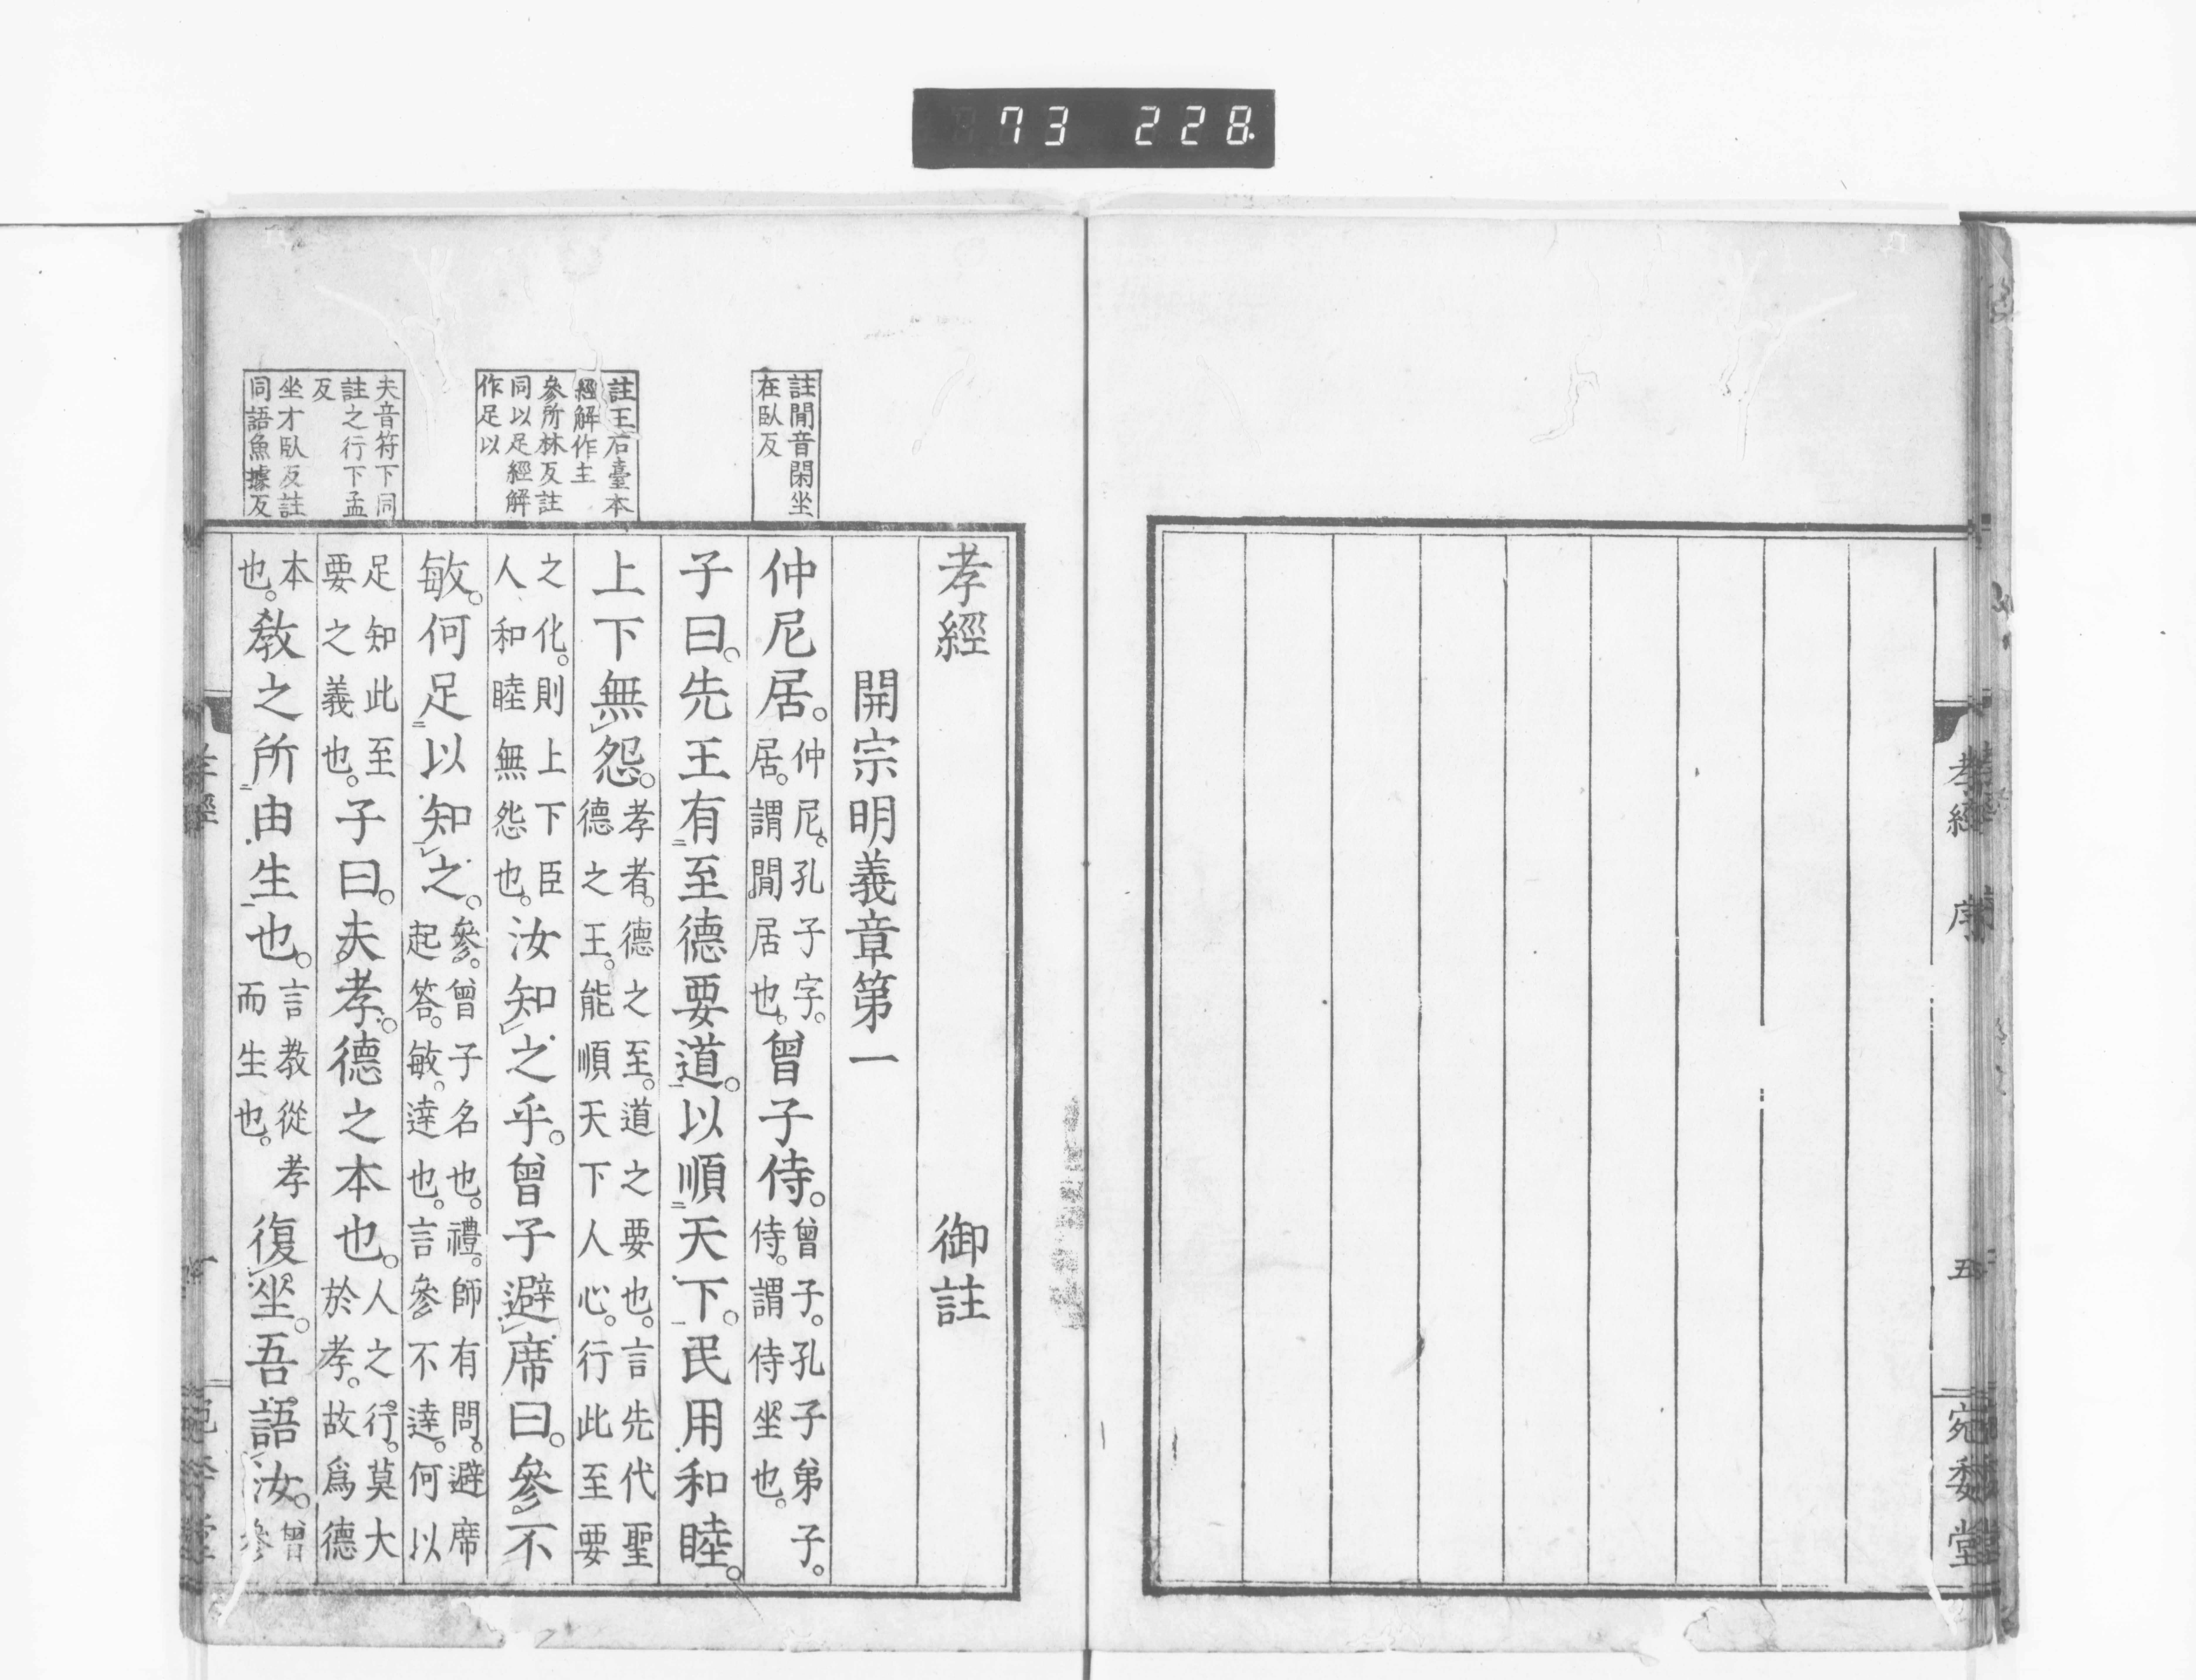 73 228
孝經 序
五
宛委堂
註閒音閑坐
在臥反
註王石臺本
經解作主
參所林反註
同以足經解
作足以
夫音符下同
註之行下孟
反
坐才臥反註
同語魚據反
孝經 御註
開宗明義章第一
仲尼居。仲尼。孔子字。居。謂閒居也。曾子侍。曾子。孔子弟子。侍。謂侍坐也。
子曰。先王有至德要道。以順天下。民用和睦。
上下無怨。孝者。德之至。道之要也。言先代聖德之王。能順天下人心。行此至要
之化。則上下臣人和睦無怨也。汝知之乎。曾子避席曰。參不
敏。何足以知之。參。曾子名也。禮。師有問。避席起答。敏。達也。言參不達。何以
足知此至要之義也。子曰。夫孝。德之本也。人之行。莫大於孝。故爲德
本也。教之所由生也。言教從孝而生也。復坐。吾語汝。曾參
孝經